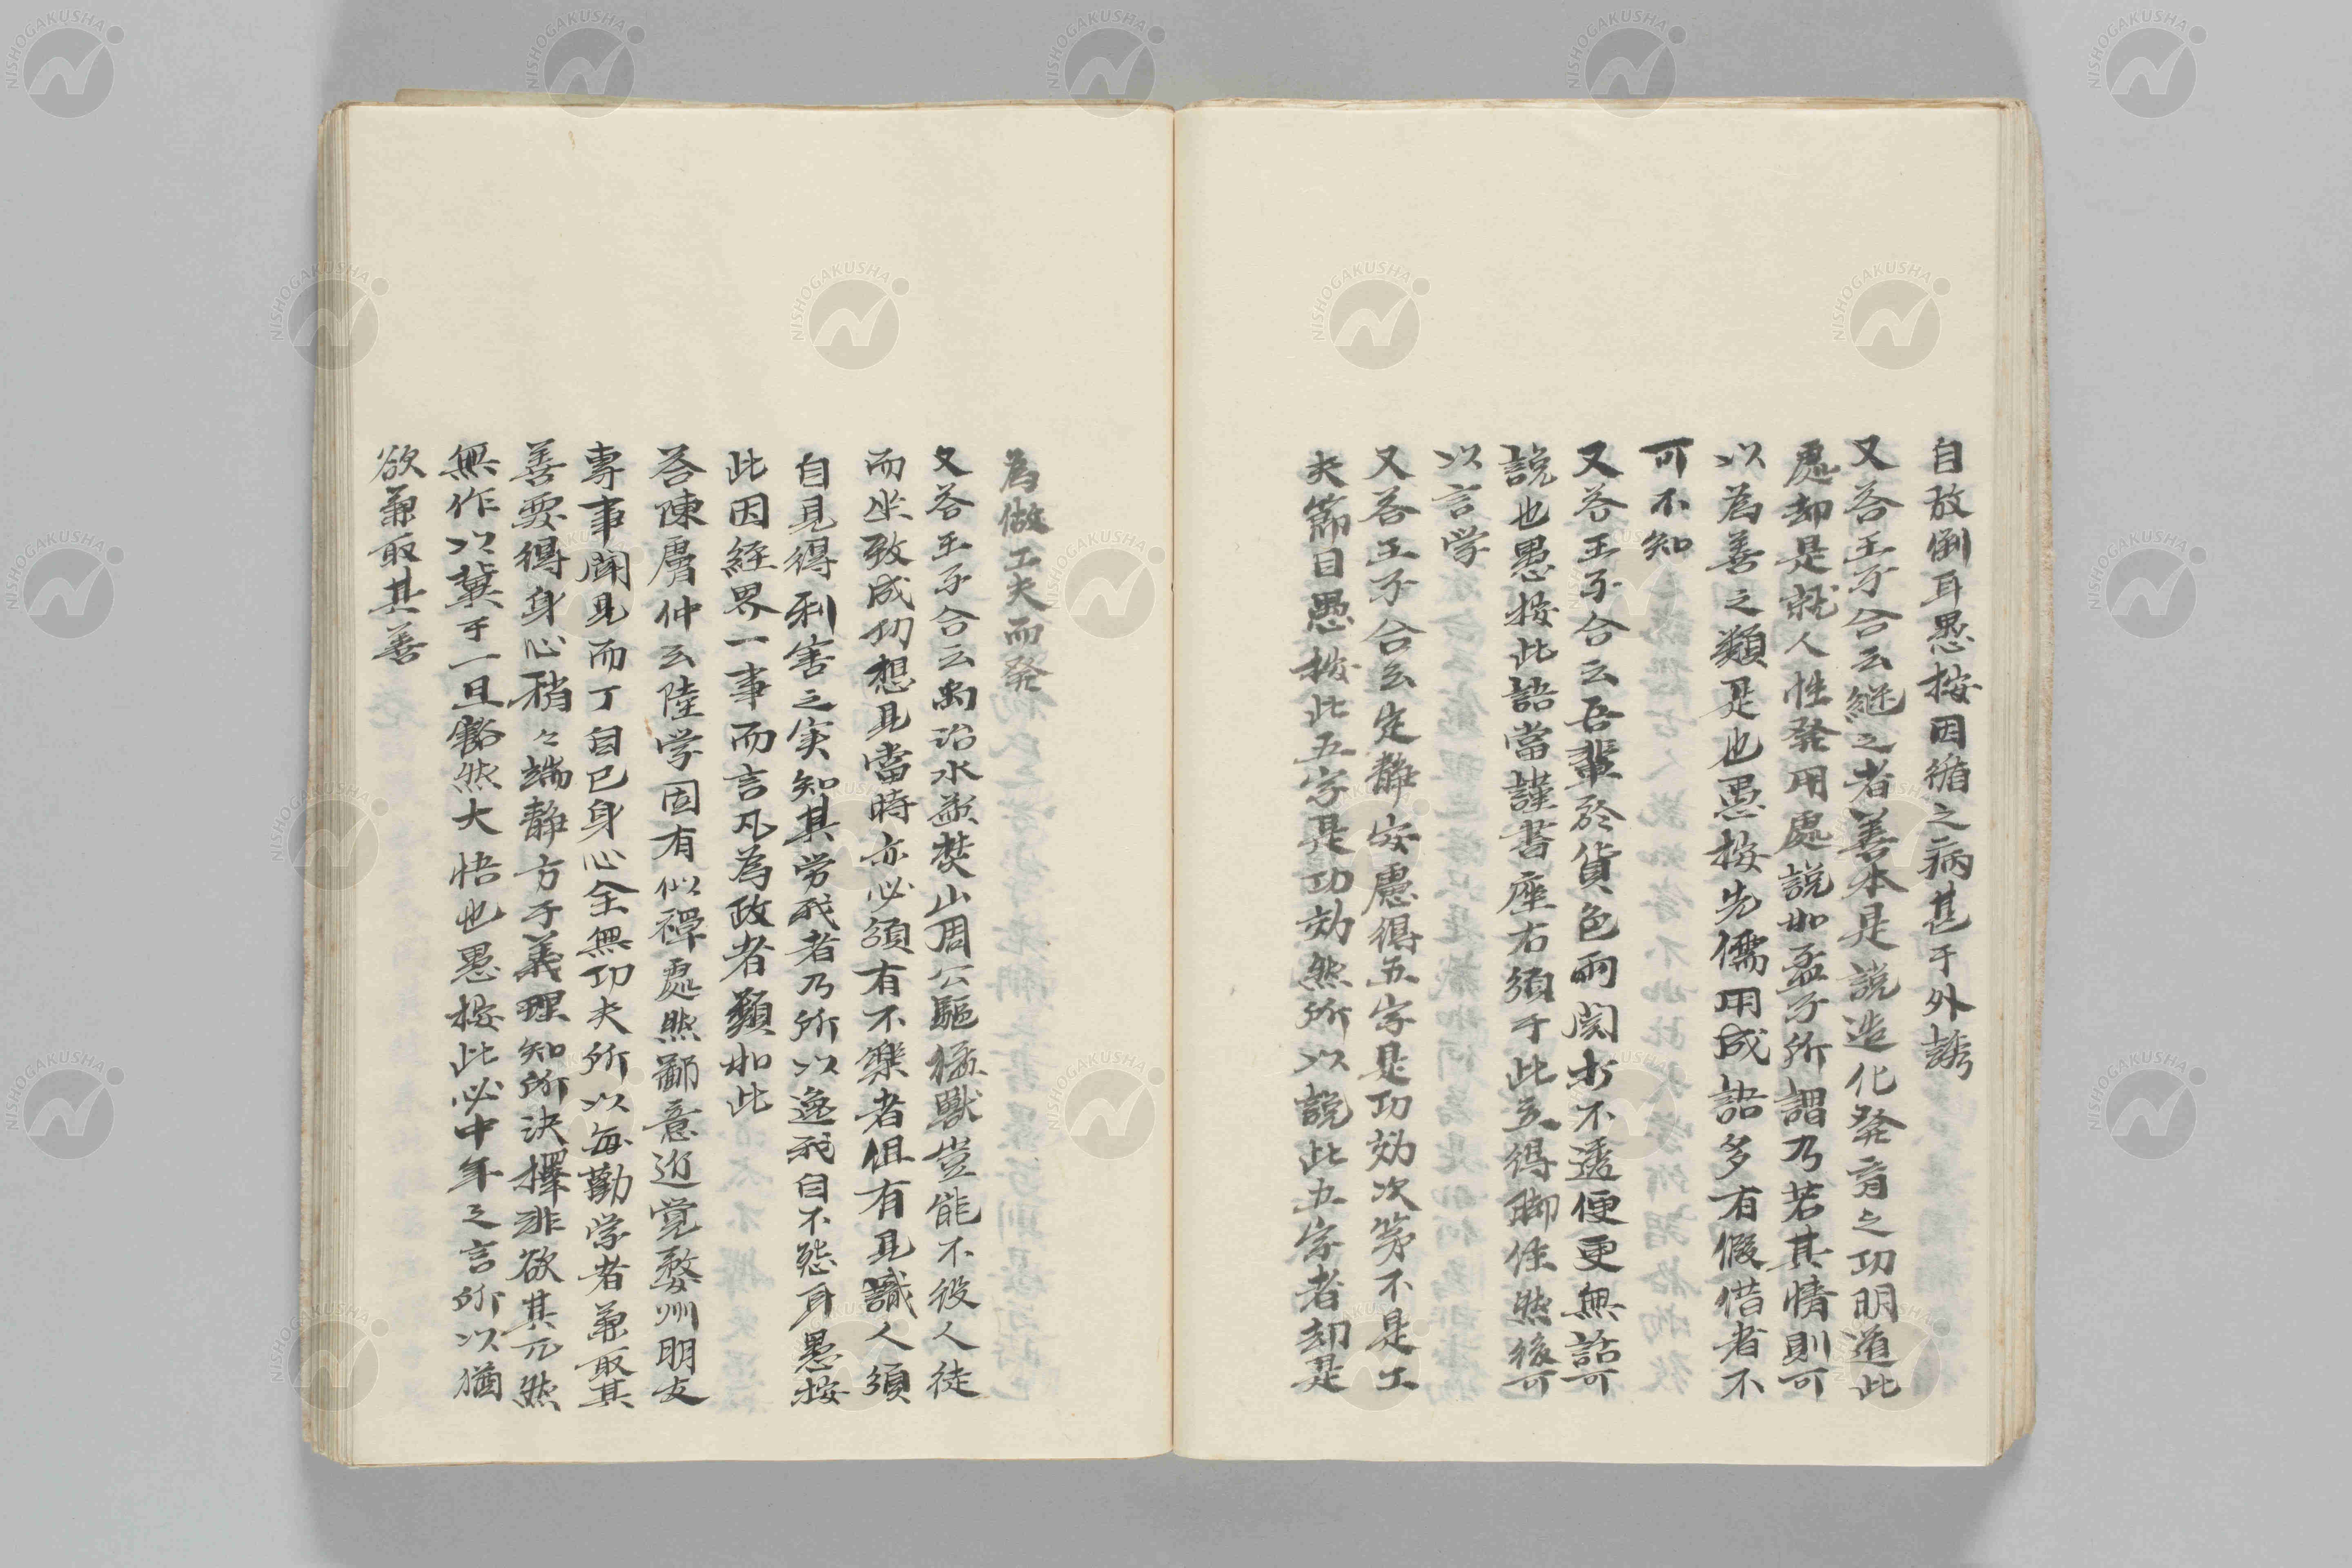 自放倒耳愚按因循之病甚于外誘
又答王子合云継之者善本是説造化発育之功明道此
處却是就人性発用處説如孟子所謂乃若其情則可
以為善之類是也愚按先儒用成語多有假借者不
可不知
又答王子合云吾輩於貨色両関打不透便更無話可
説也愚按此語當謹書座右須于此立得脚住然後可
以言学
又答王子合云定静安慮得五字是功効次第不是工
夫節目愚按此五字是功効然所以説此五字者却是
為做工夫而発
又答王子合云禹治水益焚山周公驅猛獣豈能不役人徒
而坐致成功想見當時亦必須有不樂者但有見識人須
自見得利害之実知其労我者乃所以逸我自不怨耳愚按
此因経界一事而言凡為政者類如此
答陳膚仲云陸学固有似禅處然鄙意近覚婺州朋友
専事聞見而于自己身心全無功夫所以毎勧学者兼取其
善要得身心稍々端静方于義理知所決擇非欲其兀然
無作以冀于一旦豁然大悟也愚按此必中年之言所以猶
欲兼取其善
NISHOGAKUSHA